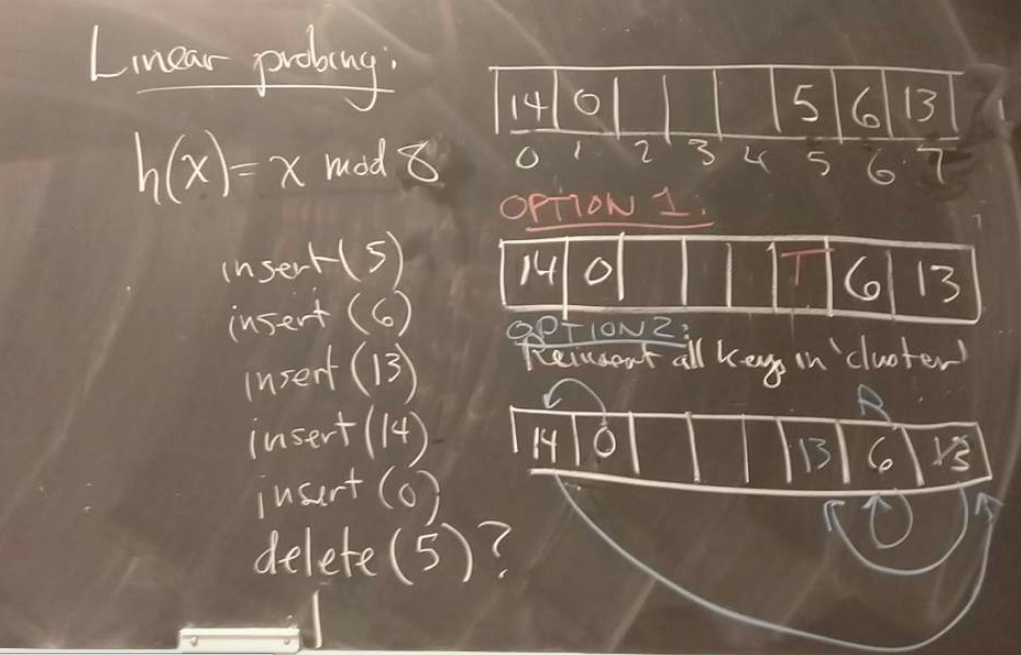 Linear probing:
h(x) = x mod 8
insert(5)
insert (6)
insert (13)
insert (14)
insert (0)
delete (5)?
14 0 5 6 13
0 1 2 3 4 5 6 7
OPTION 1:
14 0 T 6 13
OPTION 2:
Reinsert all keys in 'cluster'
14 0 13 6 13